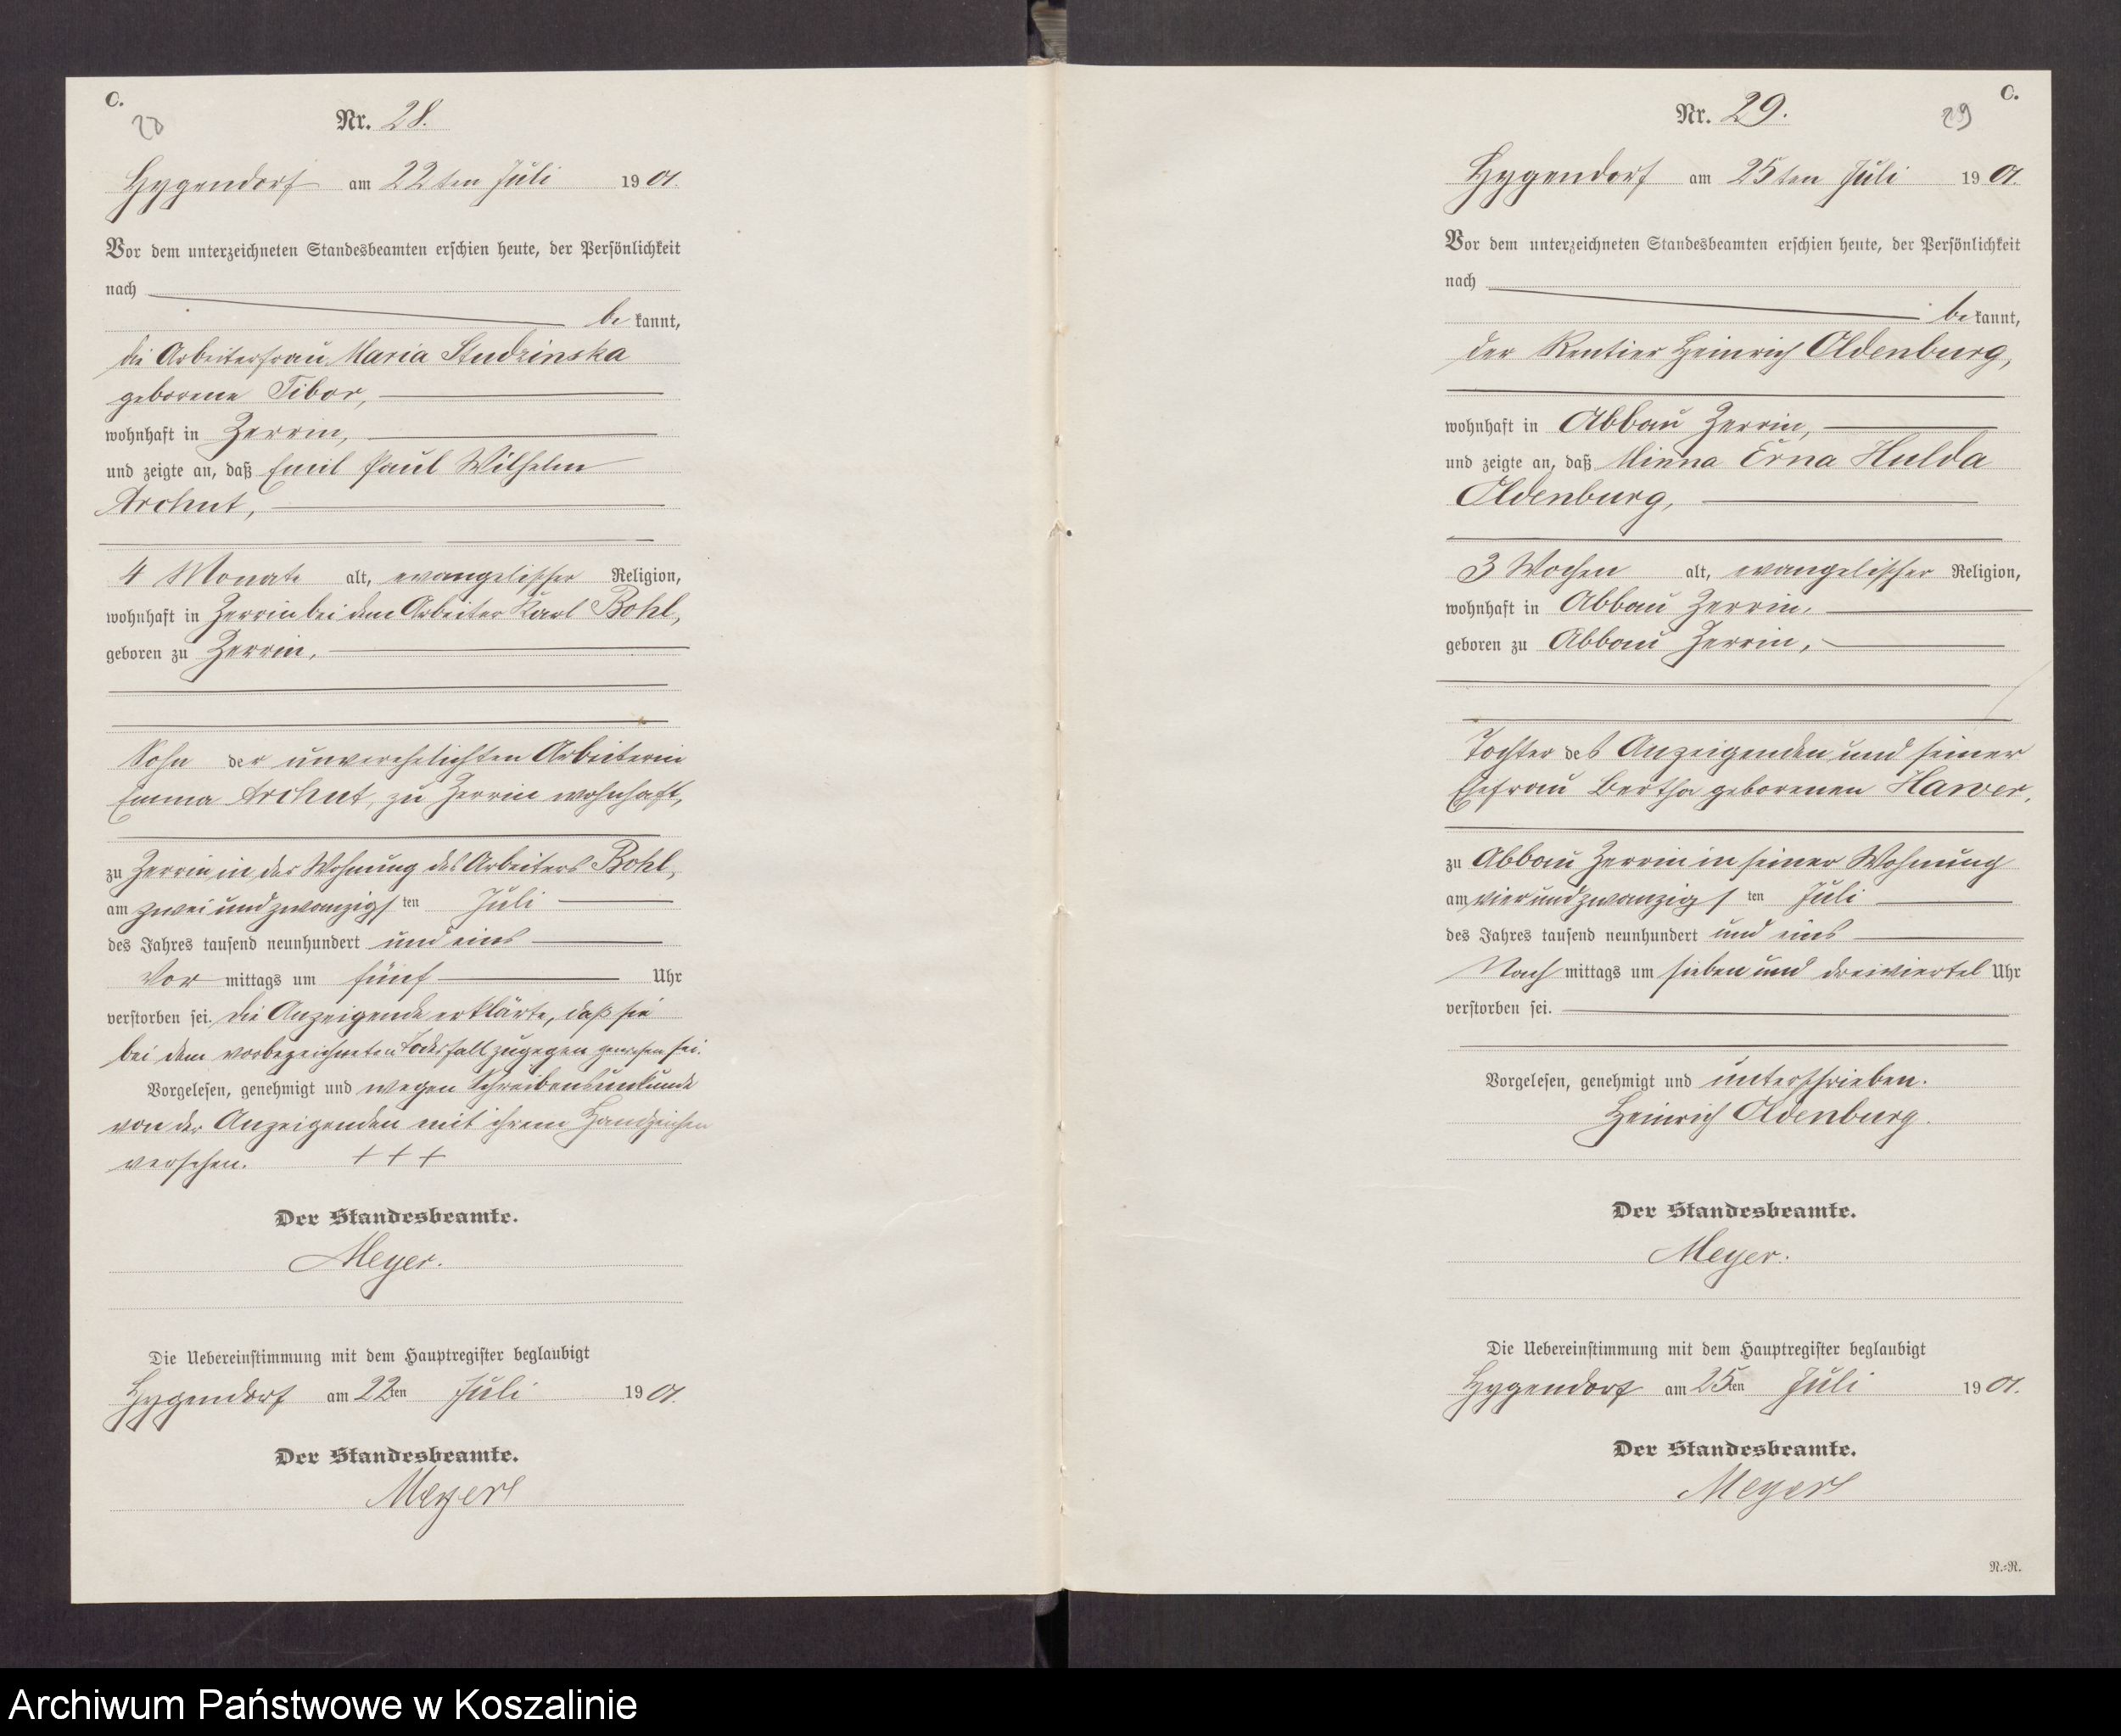 C.
28
Nr. 28.
Hygendorf am 22ten Juli 1901.
Vor dem unterzeichneten Standesbeamten erschien heute, der Persönlichkeit
nach
be kannt,
die Arbeiterfrau Maria Studzinska
geborene Tibor,
wohnhaft in Zerrin,
und zeigte an, daß Emil Paul Wilhelm
Archut,
4 Monate alt, evangelischer Religion,
wohnhaft in Zerrin bei dem Arbeiter Karl Bohl,
geboren zu Zerrin,
Sohn der unverehelichten Arbeiterin
Emma Archut, zu Zerrin wohnhaft,
zu Zerrin in der Wohnung des Arbeiters Bohl,
am zwei und zwanzigsten Juli
des Jahres tausend neunhundert und eins
Vor mittags um fünf Uhr
verstorben sei. Die Anzeigende erklärte, daß sie
bei dem vorbezeichneten Todesfall zugegen gewesen sei.
Vorgelesen, genehmigt und wegen Schreibensunkunde
von der Anzeigenden mit ihrem Handzeichen
versehen. + + +
Der Standesbeamte.
Meyer.
Die Uebereinstimmung mit dem Hauptregister beglaubigt
Hygendorf am 22ten Juli 1901.
Der Standesbeamte.
Meyer
C.
29
Nr. 29.
Hygendorf am 25ten Juli 1901.
Vor dem unterzeichneten Standesbeamten erschien heute, der Persönlichkeit
nach
be kannt,
der Rentier Heinrich Oldenburg,
wohnhaft in Abbau Zerrin,
und zeigte an, daß Minna Erna Hulda
Oldenburg,
3 Wochen alt, evangelischer Religion,
wohnhaft in Abbau Zerrin,
geboren zu Abbau Zerrin,
Tochter des Anzeigenden und seiner
Ehefrau Bertha geborenen Hawer,
zu Abbau Zerrin in seiner Wohnung
am vier und zwanzigsten Juli
des Jahres tausend neunhundert und eins
Nach mittags um sieben und dreiviertel Uhr
verstorben sei.
Vorgelesen, genehmigt und unterschrieben.
Heinrich Oldenburg.
Der Standesbeamte.
Meyer.
Die Uebereinstimmung mit dem Hauptregister beglaubigt
Hygendorf am 25ten Juli 1901.
Der Standesbeamte.
Meyer
R.=R.
Archiwum Państwowe w Koszalinie